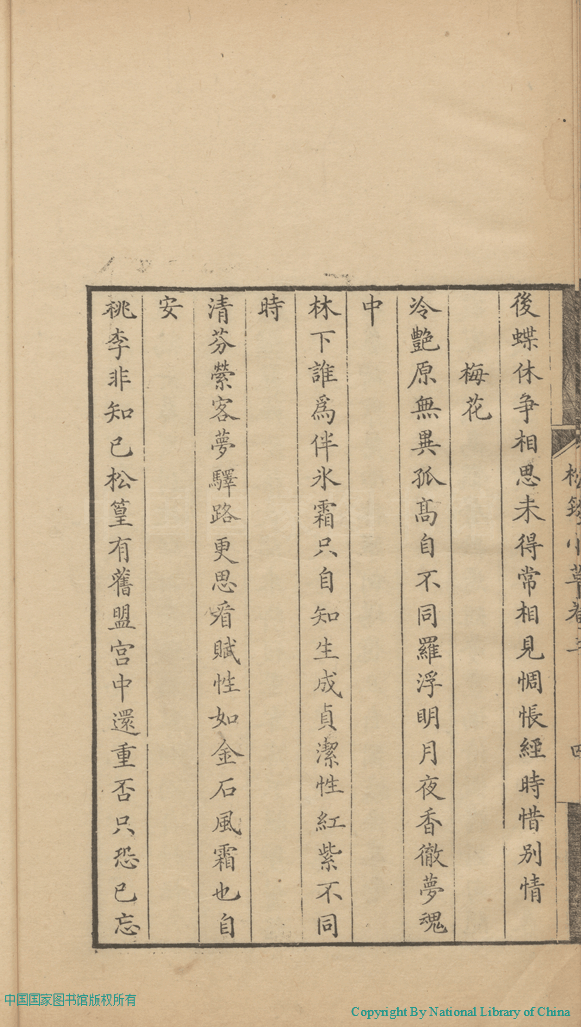 後蝶休争相思未得常相見惆悵經時惜別情
梅花
冷艷原無異孤髙自不同羅浮明月夜香徹夢魂
中
林下誰爲伴氷霜只自知生成貞潔性紅紫不同
時
清芬縈客夢驛路更思看賦性如金石風霜也自
安
桃李非知已松篁有舊盟宫中還重否只恐已忘
中国国家图书馆版权所有
Copyright By National Library of China